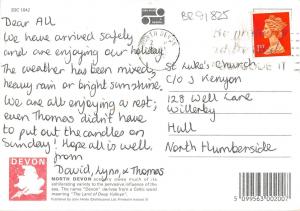 2DC 1042
BR91825
Dear All
We have arrived safely
and are enjoying our holiday!
The weather has been mixed,
heavy rain or bright sunshine.
We are all enjoying a rest;
even Thomas didn't have
to put out the candles on
Sunday! Hope all is well,
from
David, Lynn, + Thomas
1ST
St Luke's Church
C/O J Kenyon
128 Well Lane
Willerby
Hull
North Humberside
DEVON
NORTH DEVON
exhilarating variety to the pervasive influence of the
sea. The name "Devon" derives from a Celtic word
meaning "The Land of Deep Valleys".
5 099563 002007